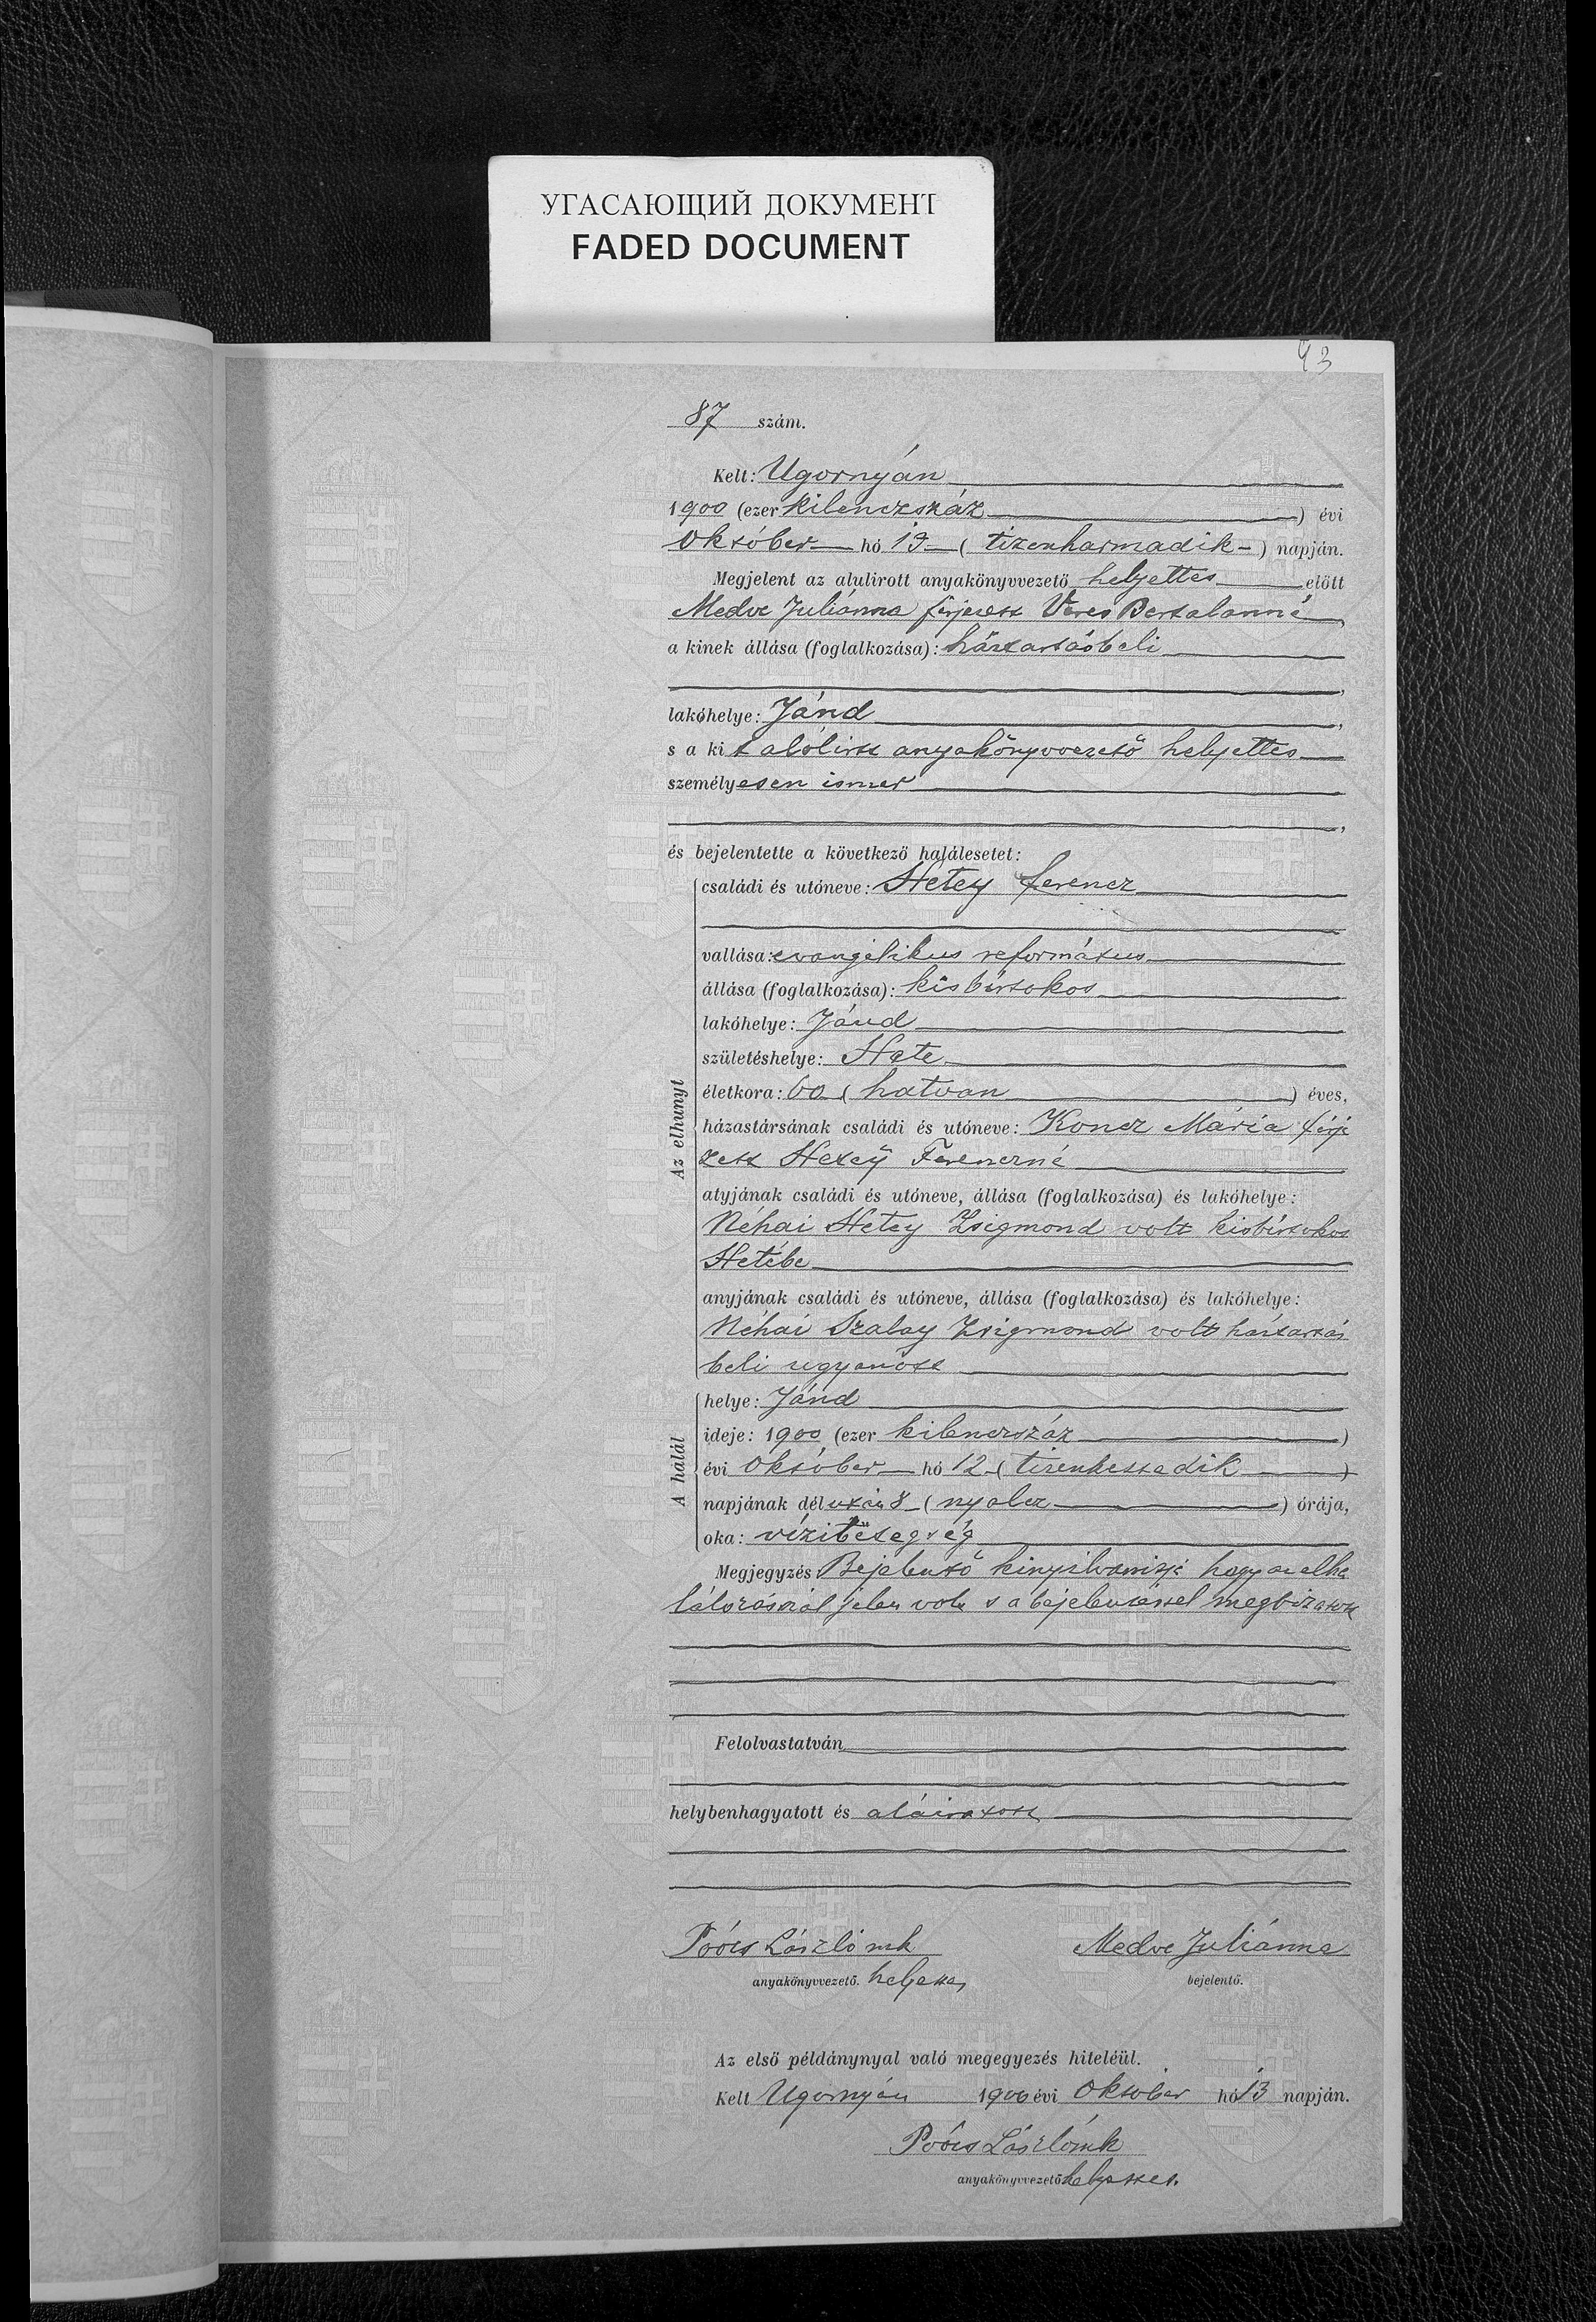 УГАСАЮЩИЙ ДОКУМЕНТ
FADED DOCUMENT
93
87 szám.
Kelt: Ugornyán
1900 (ezer kilenczszáz) évi
október hó 13 (tizenharmadik) napján.
Megjelent az alulirott anyakönyvvezető helyettes előtt
Medve Juliánna férjezett Veres Bertalanné,
a kinek állása (foglalkozása): háztartásbeli
lakóhelye: Jánd,
s a kit alólirtt anyakönyvvezető helyettes
személyesen ismer
és bejelentette a következő halálesetet:
Az elhunyt
családi és utóneve: Hetey Ferencz
vallása: evangélikus református
állása (foglalkozása): kisbirtokos
lakóhelye: Jánd
születéshelye: Hete
életkora: 60 (hatvan) éves,
házastársának családi és utóneve: Koncz Mária férje
zett Hetey Ferenczné
atyjának családi és utóneve, állása (foglalkozása) és lakóhelye:
Néhai Hetey Zsigmond volt kisbirtokos
Hetébe
anyjának családi és utóneve, állása (foglalkozása) és lakóhelye:
Néhai Szalay Zsigmond volt háztartás
beli ugyanott
A halál
helye: Jánd
ideje: 1900 (ezer kilenczszáz)
évi október hó 12 (tizenkettedik)
napjának délután 8 (nyolcz) órája,
oka: vízibetegség
Megjegyzés: Bejelentő kinyilvánítja hogy az elha
lálozásnál jelen volt s a bejelentéssel megbizatott
Felolvastatván
helybenhagyatott és aláiratott
Poócs László mk
anyakönyvvezető. helyettes
Medve Juliánna
bejelentő.
Az első példánynyal való megegyezés hiteléül.
Kelt Ugornyán 1900 évi október hó 13 napján.
Poócs László mk
anyakönyvvezető helyettes.